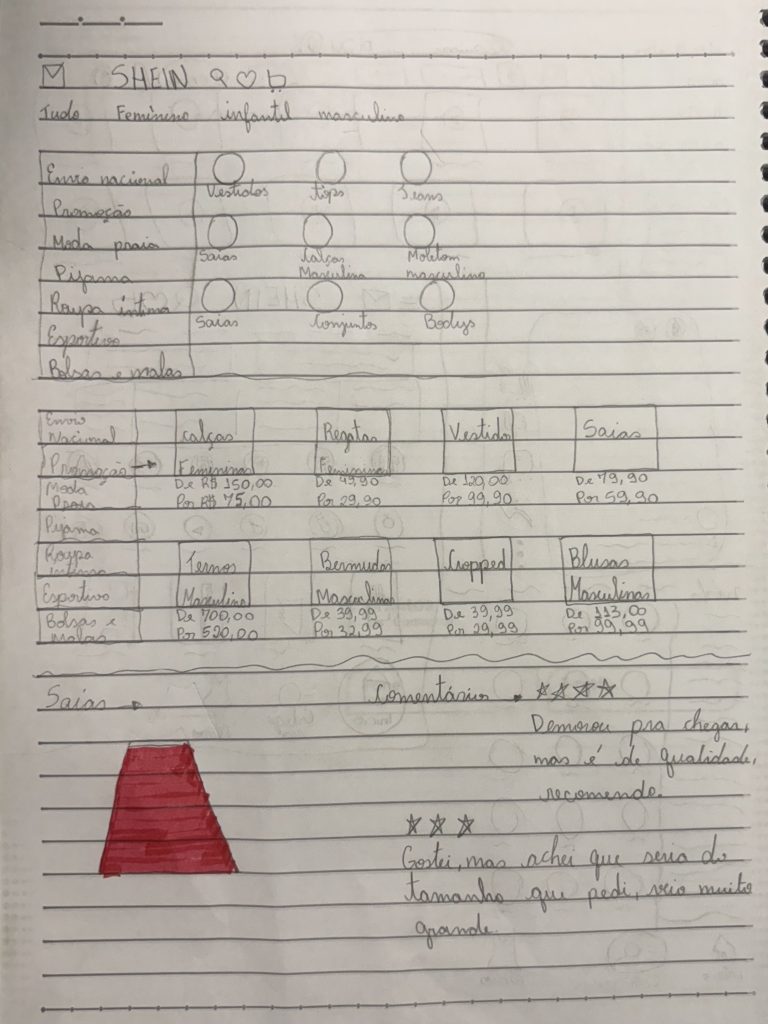 SHEIN
Tudo Feminino infantil masculino
Envio nacional
Promoção
Moda praia
Pijama
Roupa íntima
Esportivo
Bolsas e malas
Vestidos tops Jeans
Saias Calças Masculina Moletom masculino
Saias Conjuntos Bodys
Envio Nacional
Promoção →
Moda Praia
Pijama
Roupa íntima
Esportivo
Bolsas e malas
Calças Femininas
De R$ 150,00
Por R$ 75,00
Regatas Femininas
De 49,90
Por 29,90
Vestidos
De 120,00
Por 99,90
Saias
De 79,90
Por 59,90
Ternos Masculino
De 700,00
Por 520,00
Bermudas Masculinas
De 39,99
Por 32,99
Cropped
De 39,99
Por 29,99
Blusas Masculinas
De 113,00
Por 99,99
Saias →
Comentários
Demorou pra chegar,
mas é de qualidade,
recomendo.
Gostei, mas achei que seria do
tamanho que pedi, veio muito
grande.